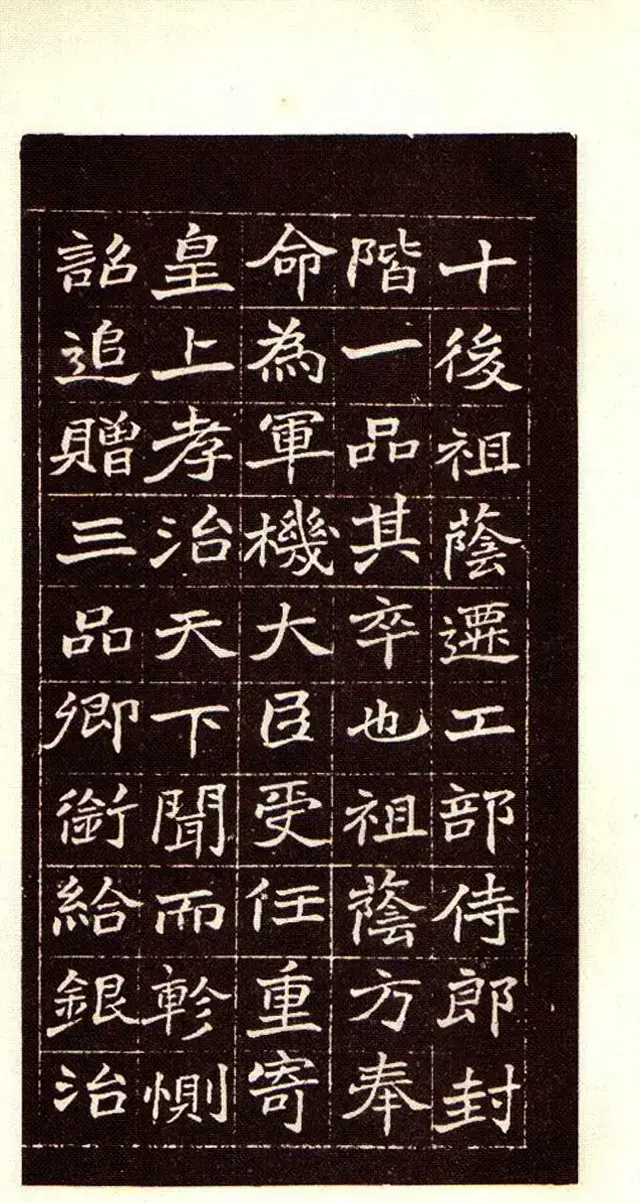 十後祖蔭遷工部侍郎封
階一品其卒也祖蔭方奉
命為軍機大臣受任重寄
皇上孝治天下聞而軫惻
詔追贈三品卿銜給銀治